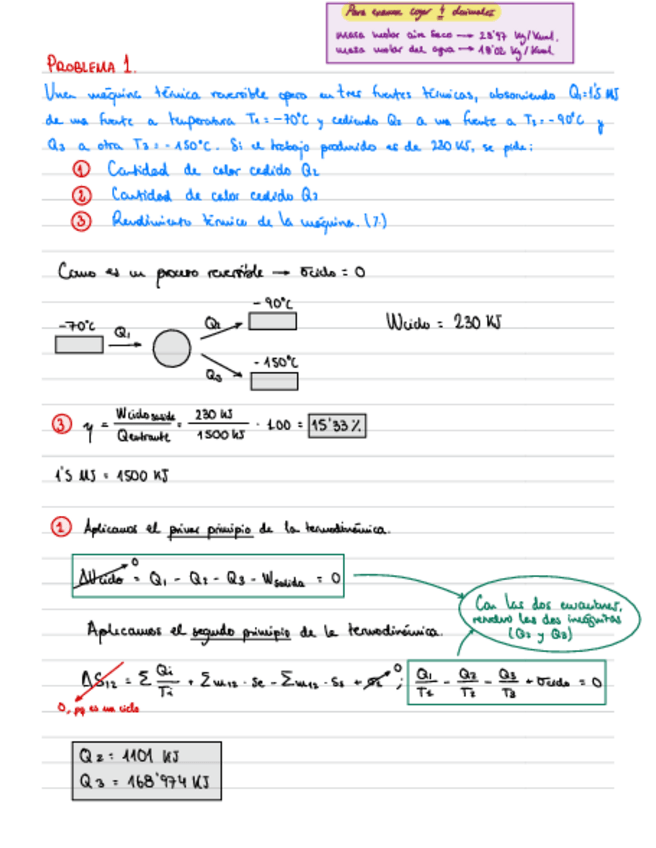 Para examen coger 4 decimales
masa molar aire seco → 28'97 Kg/Kmol.
masa molar del agua → 18'02 Kg/Kmol
PROBLEMA 1.
Una máquina térmica reversible opera entre fuentes térmicas, absorviendo Q₁=1'5 MJ
de una fuente a temperatura T₁ = -70°C y cediendo Q₂ a una fuente a T₂ = -90°C y
Q₃ a otra T₃ = -150°C. Si el trabajo producido es de 230 KJ, se pide:
① Cantidad de calor cedido Q₂
② Cantidad de calor cedido Q₃
③ Rendimiento térmico de la máquina. (%)
Como es un proceso reversible → σciclo = 0
-90°C
-70°C Q₁ Q₂ Wciclo = 230 KJ
-150°C
Q₃
③ η = Wciclo salida / Qentrante = 230 KJ / 1500 KJ · 100 = 15'33 %
1'5 MJ = 1500 KJ
① Aplicamos el primer principio de la termodinámica.
ΔUciclo = Q₁ - Q₂ - Q₃ - Wsalida = 0
0
Con las dos ecuaciones,
resuelvo las dos incógnitas
(Q₂ y Q₃)
Aplicamos el segundo principio de la termodinámica.
ΔS₁₂ = Σ Qi/Ti + Σm₁₂ · se - Σm₁₂ · ss + σ₁₂ 0 ; Q₁/T₁ - Q₂/T₂ - Q₃/T₃ + σciclo = 0
0, pq es un ciclo
Q₂ = 1101 KJ
Q₃ = 168'974 KJ